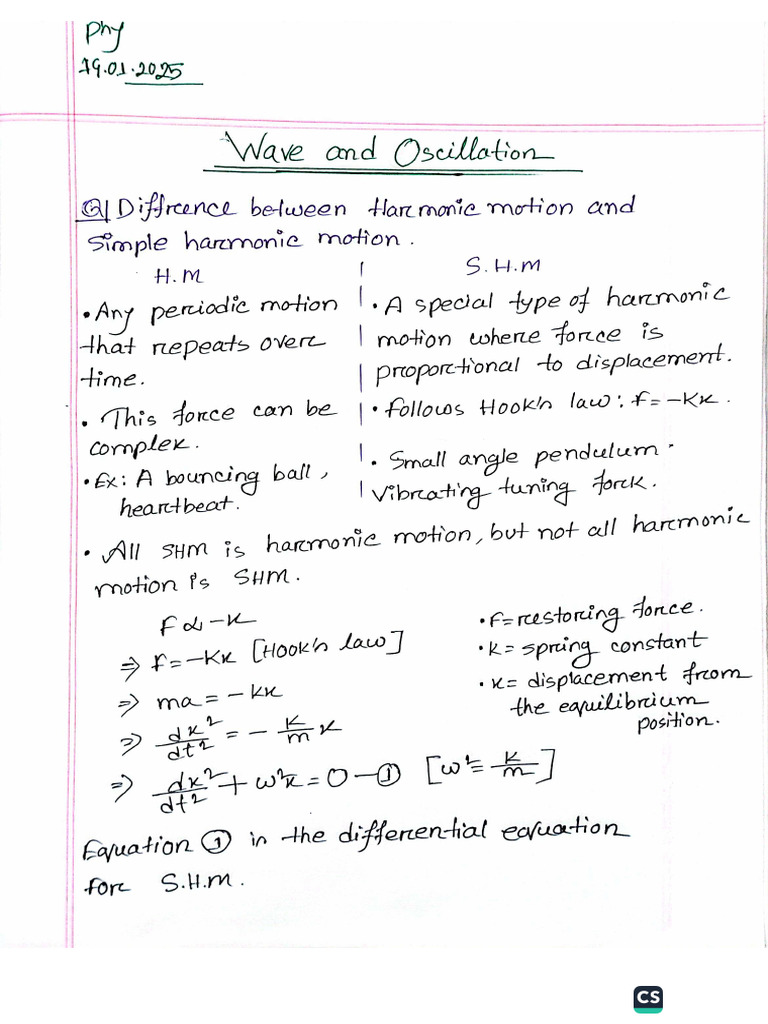 Phy
19.01.2025
Wave and Oscillation
Q| Diffrence between Harmonic motion and
Simple harmonic motion.
H.M
S.H.M
• Any periodic motion
that repeats over
time.
• This force can be
complex.
• Ex: A bouncing ball,
heartbeat.
• A special type of harmonic
motion where force is
proportional to displacement.
• Follows Hook's law: F=-Kx.
• Small angle pendulum.
Vibrating tuning fork.
• All SHM is harmonic motion, but not all harmonic
motion is SHM.
F ∝ -x
⇒ F=-Kx [Hook's law]
⇒ ma = -kx
⇒ dx²/dt² = - K/m x
⇒ dx²/dt² + ω²x = 0 — ① [ω² = K/m]
• F=restoring force.
• k = spring constant
• x= displacement from
the equilibrium
position.
Equation ① in the differential equation
for S.H.M.
CS